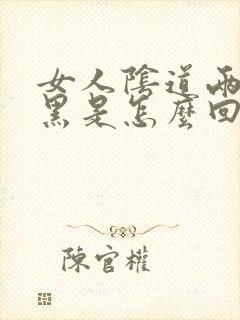 女人陰道兩
黑是怎麼回
陳官權